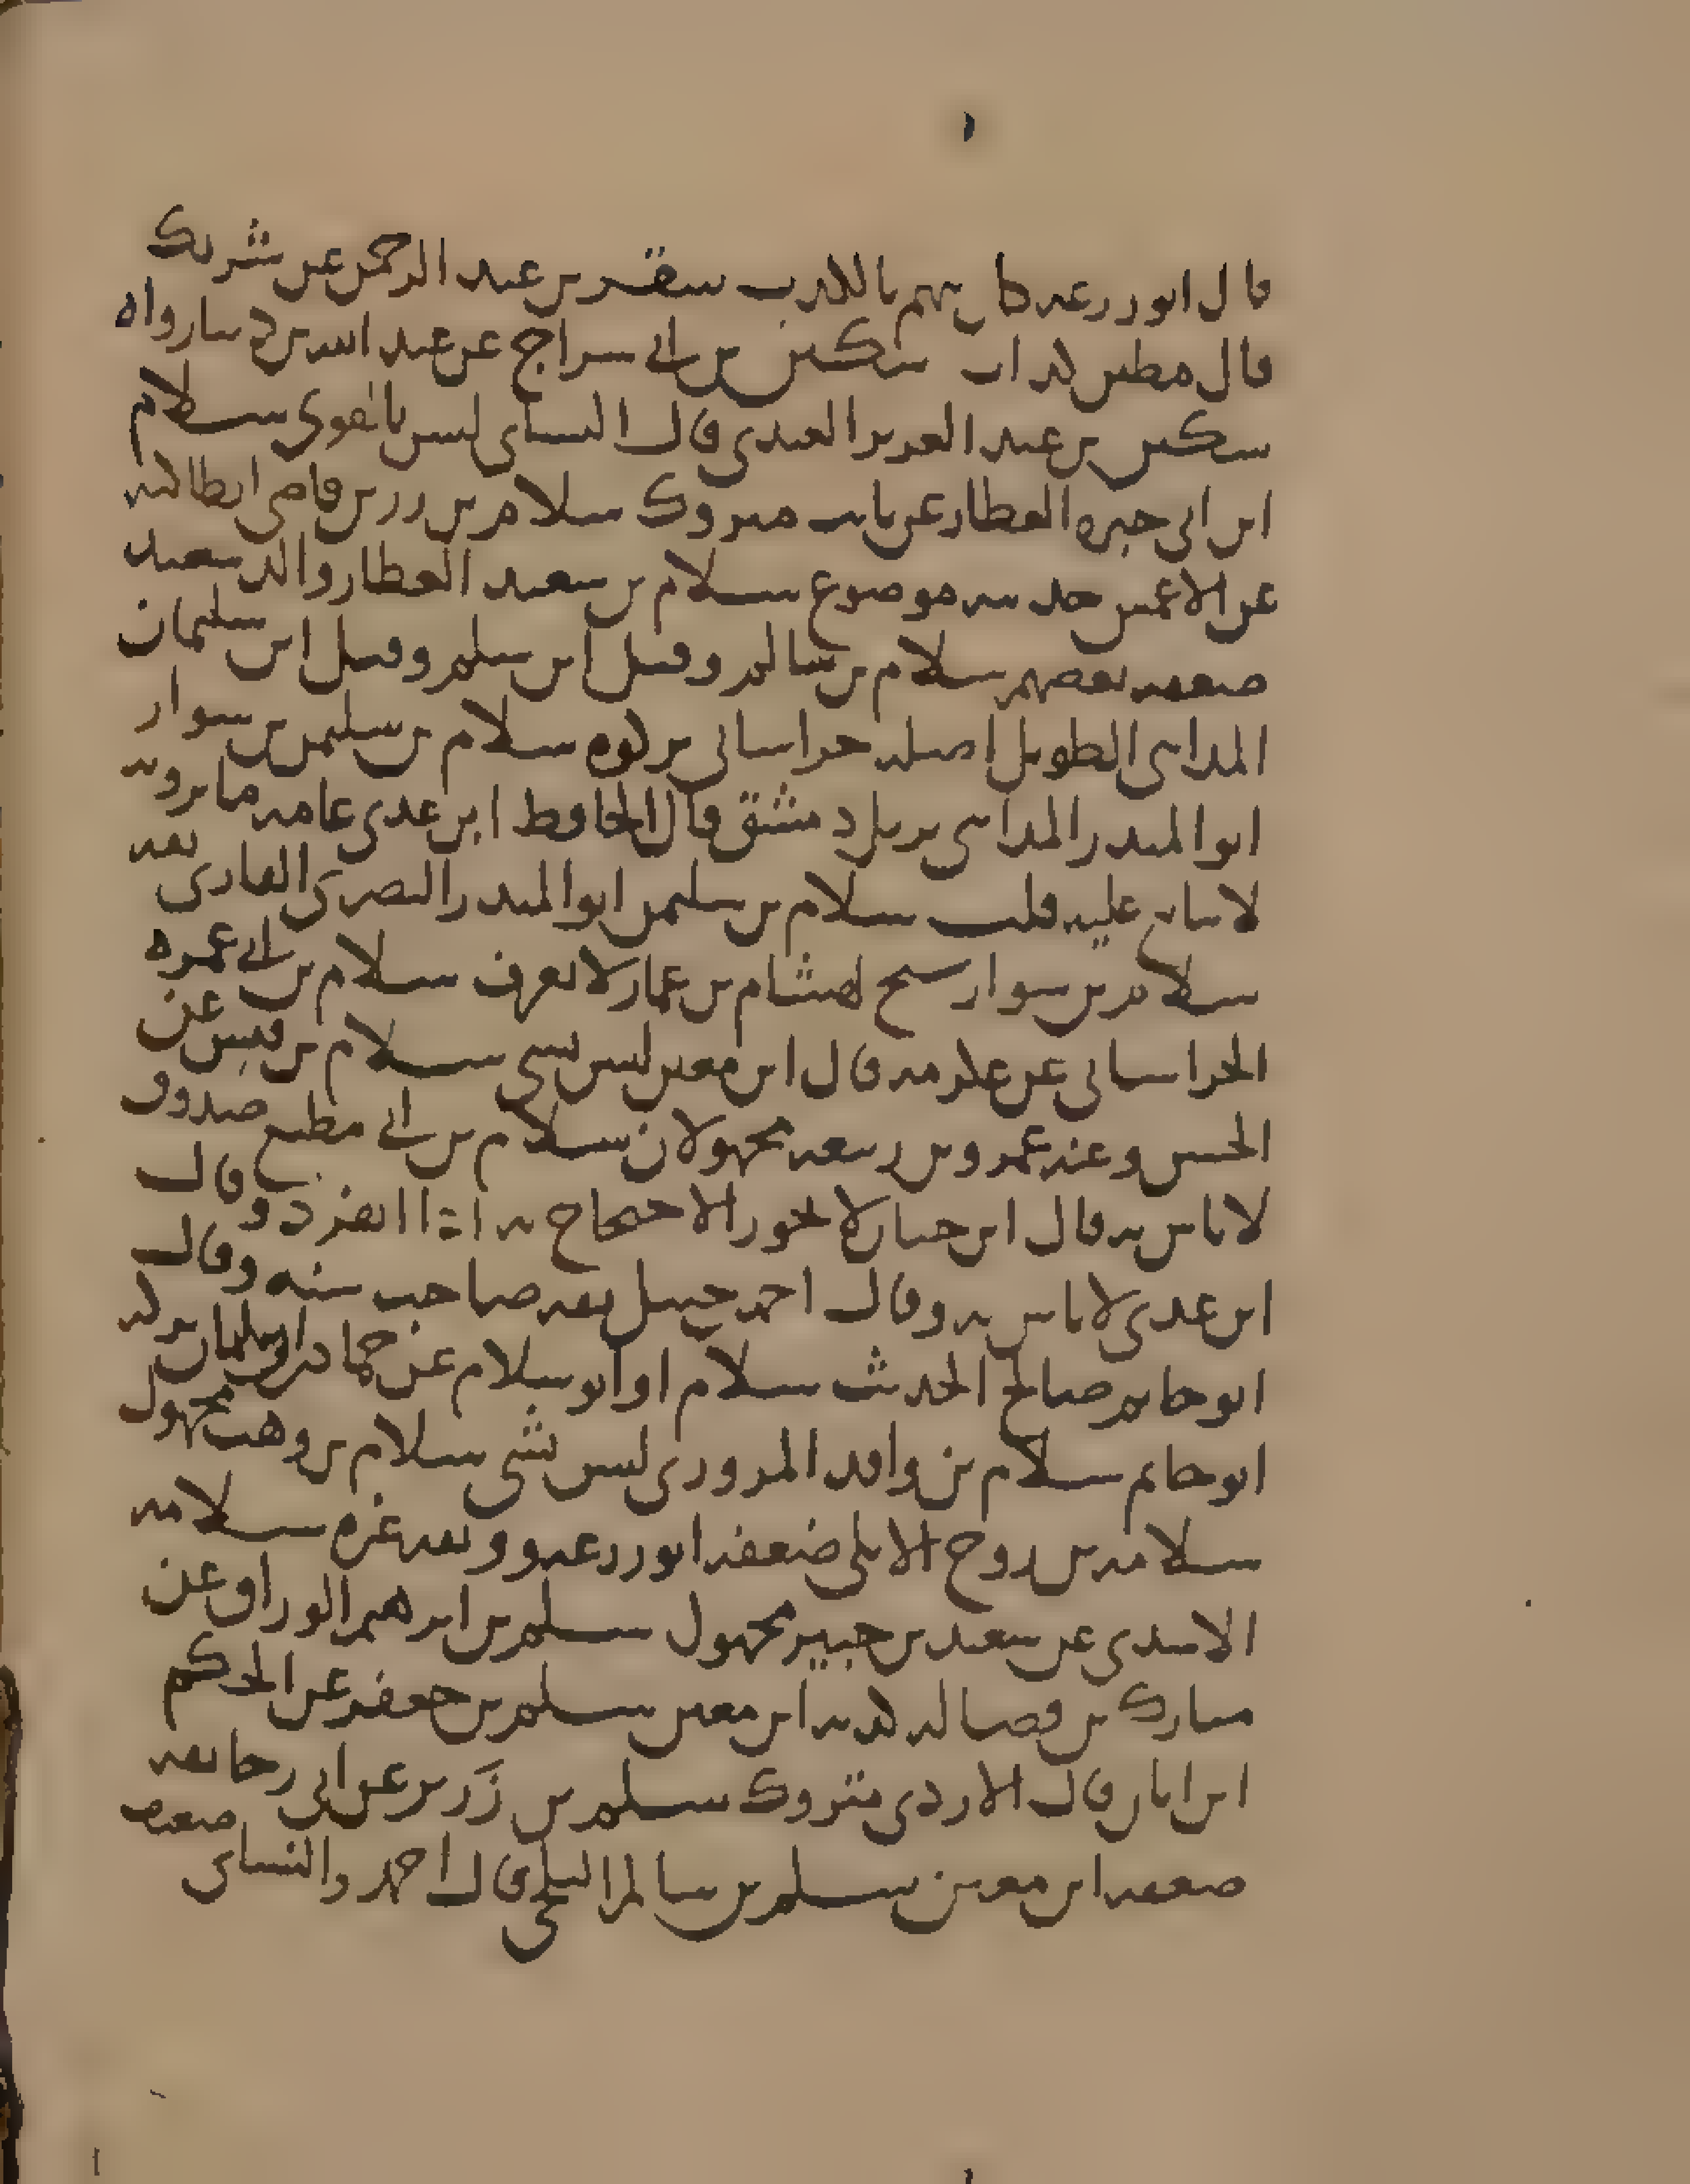 قال ابو زرعه كان يتهم بالكذب سقر بن عبد الرحمن عن شريك
قال مطين كذاب سكين بن ابي سراج عن عبد الله بن دينار واه
سكين بن عبد العزيز العبدي قال النساي ليس بالقوي سلام
ابن ابي خبزه العطار عن ثابت متروك سلام بن رزين قاضي انطاكيه
عن الاعمش حديثه موضوع سلام بن سعيد العطار والد سعيد
ضعفه بعضهم سلام بن سالم وقيل ابن سلم وقيل ابن سليمان
المدايني الطويل اصله خراساني تركوه سلام بن سليمن بن سوار
ابو المنذر المدايني نزيل دمشق قال الحافظ ابن عدي عامه ما يرويه
لا يتابع عليه قلت سلام بن سليمن ابو المنذر البصري القاري ثقه
سلام بن سوار شيخ لهشام بن عمار لا يعرف سلام بن ابي عمره
الخراساني عن عكرمه قال ابن معين ليس بشي سلام بن قيس عن
الحسن وعنه عمرو بن ربيعه مجهولان سلام بن ابي مطيع صدوق
لا باس به قال ابن حبان لا يجوز الاحتجاج به اذا انفرد وقال
ابن عدي لا باس به وقال احمد حنبل ثقه صاحب سنه وقال
ابو حاتم صالح الحديث سلام او ابو سلام عن حماد بن ابي سليمان تركه
ابو حاتم سلام بن واقد المروزي ليس بشي سلام بن وهب مجهول
سلامه بن روح الايلي ضعفه ابو زرعه ووثقه غيره سلامه
الاسدي عن سعيد بن جبير مجهول سلم بن ابرهيم الوراق عن
مبارك بن فضاله كذبه ابن معين سلم بن جعفر عن الحكم
ابن ابان قال الازدي متروك سلم بن زرير عن ابي رجا ثقه
ضعفه ابن معين سلم بن سالم البلخي قال احمد والنساي ضعيف